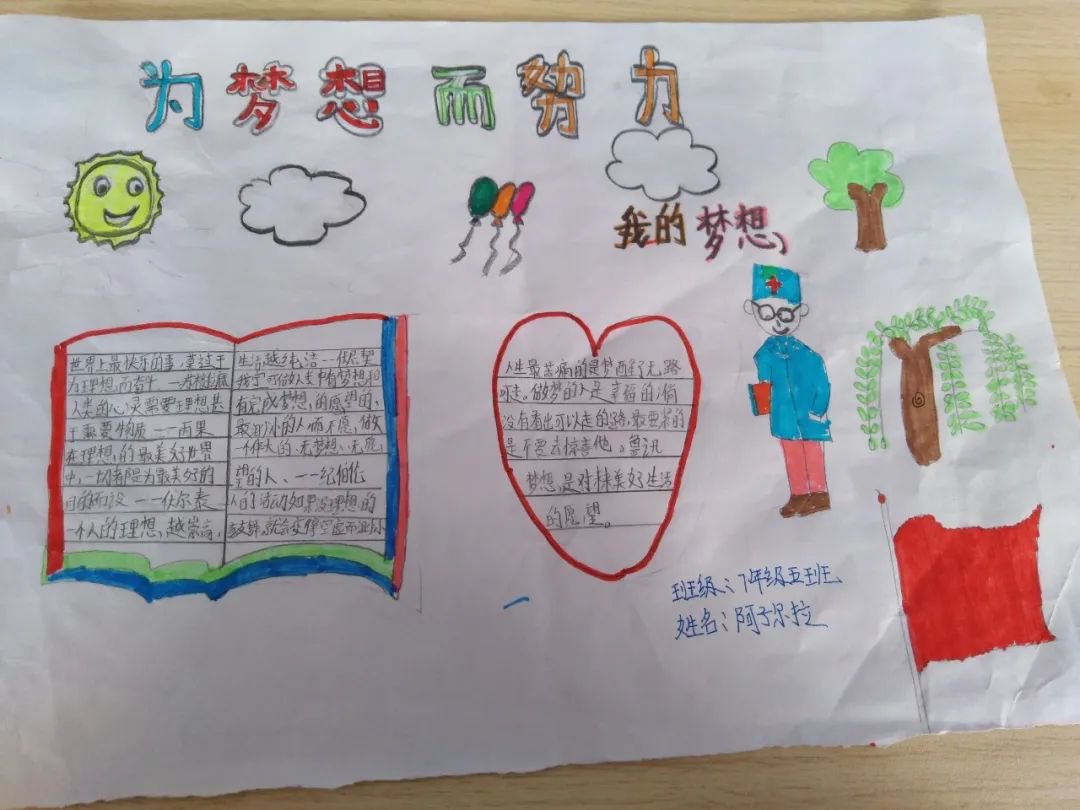 为梦想而努力
我的梦想
世界上最快乐的事,莫过于
为理想而奋斗 一
人类的心灵需要理想甚
于需要物质 一一雨果
在理想的最美好世界
中,一切都是为最美好的
目的而设 一一伏尔泰
一个人的理想越崇高,
生活越纯洁一一伏尼契
我宁可做人类中有梦想和
有完成梦想的愿望的、
最渺小的人而不愿做
一个伟人的、无梦想、无愿
望的人、一一纪伯伦
人的活动如果没理想的
鼓舞,就会变得空虚而渺小
人生最苦痛的是梦西醒了无路
可走。做梦的人是幸福的;倘
没有看出可以走的路,最要紧的
是不要去惊喜他。鲁迅
梦想,是对未来美好生活
的愿望。
班级:7年级五班
姓名:阿子尔拉